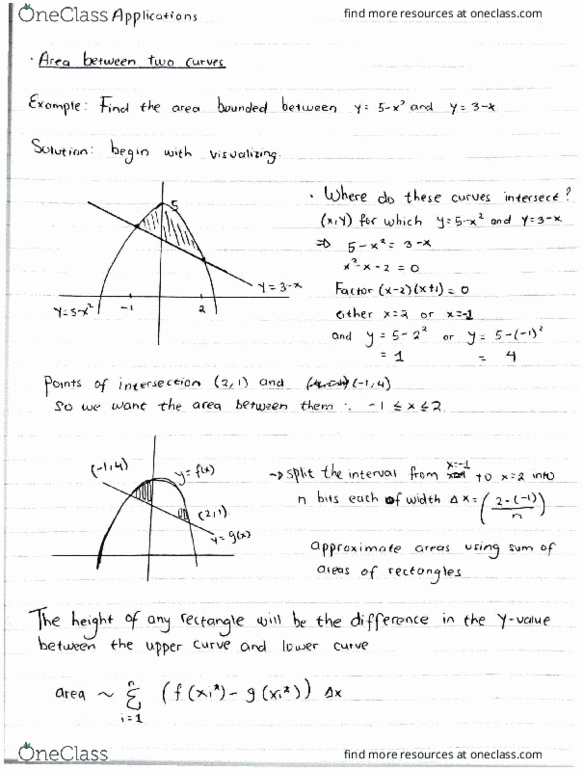 OneClass Applications
find more resources at oneclass.com
· Area between two curves
Example: Find the area bounded between y = 5-x² and y = 3-x
Solution: begin with visualizing.
5
y = 3-x
y=5-x²
-1
2
· Where do these curves intersect?
(x,y) for which y=5-x² and y=3-x
⇒ 5-x² = 3-x
x²-x-2 = 0
Factor (x-2)(x+1)=0
either x=2 or x=-1
and y = 5-2² or y = 5-(-1)²
= 1 = 4
Points of intersection (2,1) and (-1,4)
So we want the area between them ∴ -1 ≤ x ≤ 2
(-1,4)
y=f(x)
(2,1)
y=g(x)
→ split the interval from x=-1 to x=2 into
n bits each of width Δx = ( 2-(-1) / n )
approximate areas using sum of
areas of rectangles
The height of any rectangle will be the difference in the y-value
between the upper curve and lower curve
area ~ n Σ i=1 (f(xi*) - g(xi*)) Δx
OneClass
find more resources at oneclass.com